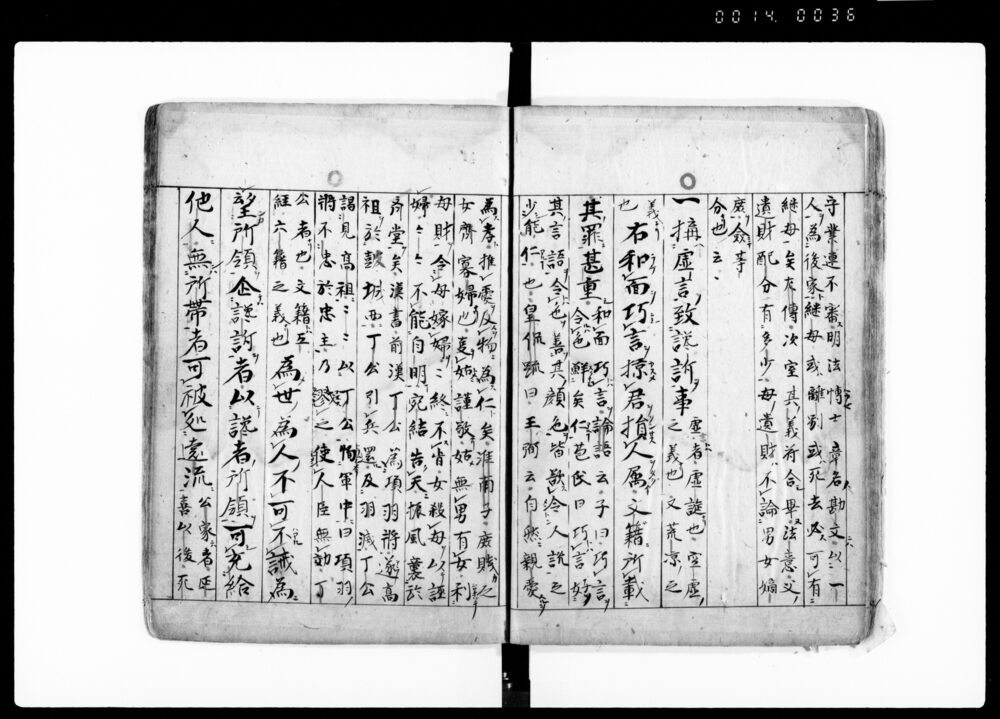 0014. 0036
子業連不審明法博士章名勘文以一
人為後家継母或離別或死去必可有
継母矣左傳次室其義符合畢法意文
遺財配分有多少母遺財不論男女嫡
庶僉等
分也云〻
一搆虚言致讒訴事虚者虚誑也空虚
之義也文荒凉之
義也
右和面巧言掠君損人属文籍所載
其罪甚重和面巧言論語云子曰巧言
令色鮮矣仁苞氏曰巧言好
其言語令色善其顔色皆欲令人説之
少能仁也皇侃疏曰王弼云自然親愛
為孝推愛及物為仁矣淮南子庶賤之
女齊寡婦也養姑謹敬姑無男有女利
母財令母嫁婦〻終不肯女殺母以誣
婦〻〻不能自明冤結告天振風襲於
齊堂矣漢書前漢丁公為項羽将逐高
祖於彭城西丁公引兵還及羽滅丁公
謁見高祖〻〻以丁公徇軍中曰項羽
将不忠於忠主乃戮之使人臣無効丁
公者也文籍五
経六籍之義也為世為人不可不誡為
望所領企讒訴者以讒者所領可充給
他人無所帯者可被処遠流公家者延
喜以後死